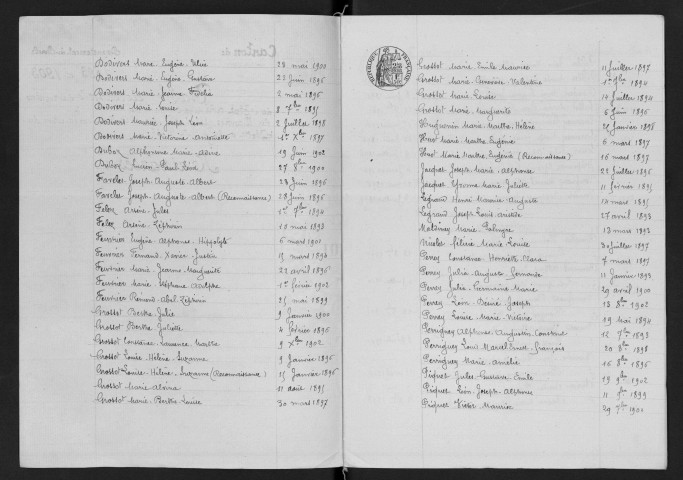 Canton de
Bodivers Marie Eugénie Julie 23 mai 1900
Bodivers Marie Eugène 22 Juin 1896
Bodivers Marie Jeanne 2 mai 1896
Bodivers Marie Louise 8 7bre 1895
Bodivers Maurice Joseph Léon 2 Juillet 1898
Bodivers Marie Victorine Antoinette 1er Xbre 1897
Duboz Alphonsine Marie 19 Juin 1902
Duboz Lucien Paul Léon 27 8bre 1900
Favelet Joseph Auguste Albert 28 Juin 1896
Favelet Joseph Auguste Albert (Reconnaissance) 28 Juin 1896
Felez Arsène Jules 1er 7bre 1894
Felez Arsène Zéphirin 18 mai 1893
Feuvrier Eugène Alphonse Hippolyte 6 mars 1901
Feuvrier Fernand Xavier Justin 19 mars 1894
Feuvrier Marie Jeanne Marguerite 22 avril 1896
Feuvrier Marie Stéphane Adolphe 1er février 1902
Feuvrier Rémond Abel Zéphirin 25 mai 1899
Grosset Berthe Julie 9 Janvier 1900
Grosset Berthe Juliette 4 février 1896
Grosset Laurence Marthe 9 Xbre 1902
Grosset Louise Hélène Suzanne 9 Janvier 1896
Grosset Louise Hélène Suzanne (Reconnaissance) 15 Janvier 1896
Grosset Marie 11 août 1895
Grosset Marie Berthe Louise 30 mars 1897
RÉPUBLIQUE FRANÇAISE
Grosset Marie Emile Maurice 11 Juillet 1897
Grosset Marie Geneviève Valentine 1er 9bre 1894
Grosset Marie Louise 14 Juillet 1894
Grosset Marie Marguerite 6 Juin 1896
Huguenin Marie Marthe Hélène 25 Janvier 1896
Huot Marie Marthe Eugénie 6 mars 1897
Huot Marie Marthe Eugénie (Reconnaissance) 16 mars 1897
Jacquet Joseph Amédée 22 Juillet 1896
Jacquet Yvonne Marie Juliette 11 février 1895
Legrand Henri Maurice Auguste 10 mars 1895
Legrand Joseph Louis Aristide 27 avril 1893
Marie 13 mars 1893
Hélène Marie Louise 30 Juillet 1897
Perrey Constance Henriette Clara 7 mars 1897
Perrey Jules August Fernand 11 Janvier 1893
Perrey Julie Germaine Marie 29 avril 1900
Perrey Léon Désiré Joseph 18 8bre 1902
Perrey Louise Marie Victoire 19 mai 1894
Perriguey Alphonse Augustin Constant 12 7bre 1893
Perriguey Louis Marcel Ernest François 20 8bre 1898
Perriguey Marie Amélie 16 8bre 1896
Piquet Jules Gustave Emile 19 9bre 1902
Piquet Léon Joseph Alphonse 11 9bre 1899
Piquet Victor Maurice 29 7bre 1900